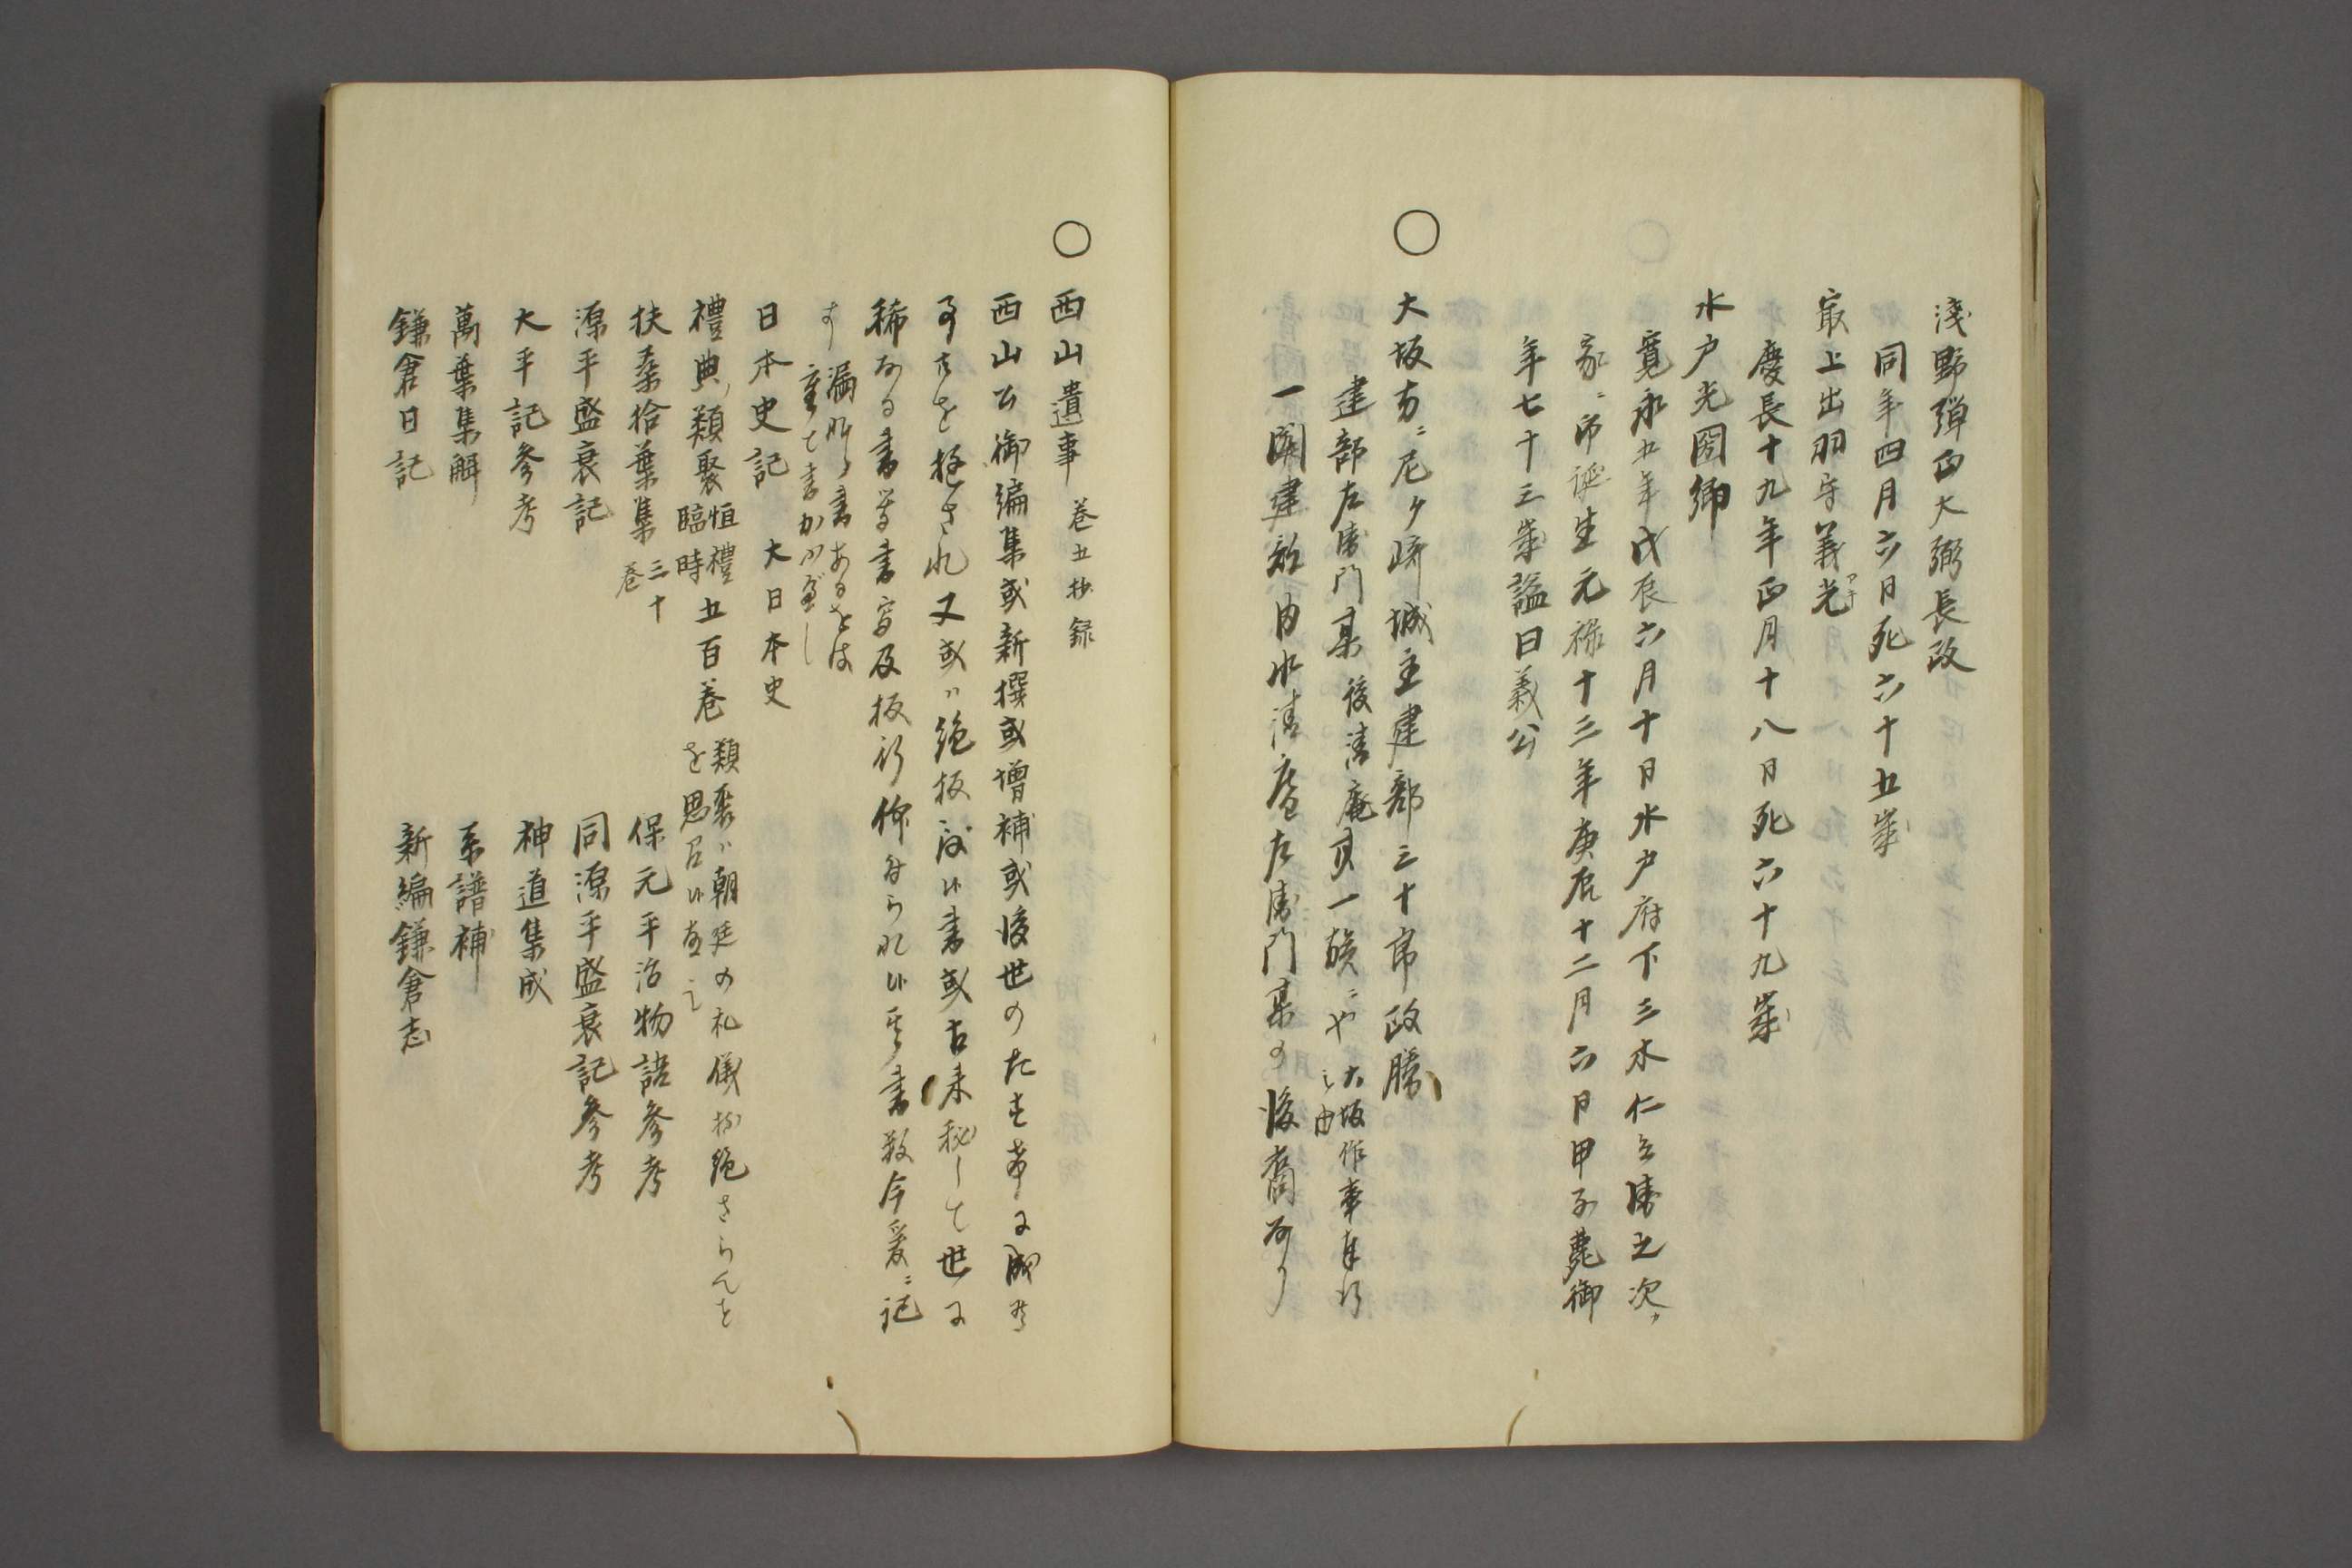 淺野彈正大弼長政
同年四月六日死六十五歳
最上出羽守義光
慶長十九年正月十八日死六十九歳
水戸光圀卿
寛永五年戊辰六月十日水戸府下三木仁兵衛之次カ
家ニ御誕生元禄十三年庚辰十二月六日甲子薨御
年七十三歳謚曰義公
○大坂方ニ尼ケ崎城主建部三十郎政勝
建部左衛門某 後清庵 一族ニや 大坂作事奉行之由
一閑建部内水清庵左衛門某の後胤なり
○西山遺事 卷五抄録
西山公御編集或新撰或增補或後世のたすけに成べき
事共を挺され又或ハ絶板後候書或古来秘して世に
稀なる書等書寫及板行仰付られ候其書数今爰ニ記
す 漏脱の書あるをは重て書加ふべし
日本史記 大日本史
禮典類聚 恒禮臨時 五百卷 類聚ハ朝廷の礼儀の絶さらんを を思召候故之
扶桑拾葉集 三十卷 保元平治物語參考
源平盛衰記 同源平盛衰記參考
大平記參考 神道集成
萬葉集觧 系譜補
鎌倉日記 新編鎌倉志